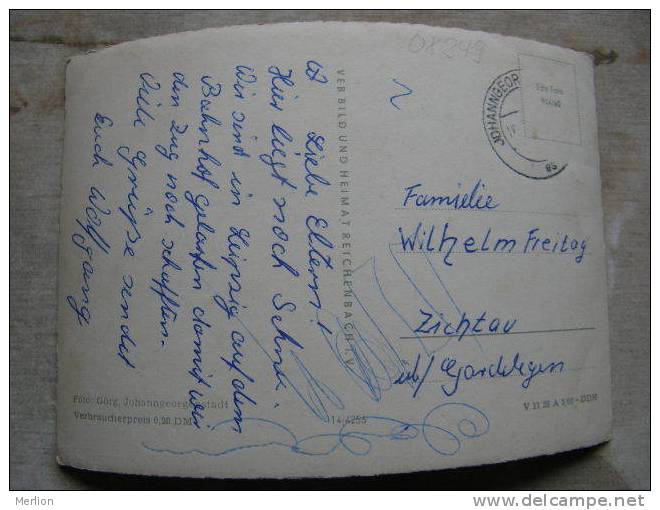 DX249
Liebe Eltern!
Hier liegt noch Schnee.
Wir sind in Leipzig auf dem
Bahnhof gelaufen damit wir
den Zug noch schafften.
Viele Grüße sendet
Euch Wolfgang
VEB BILD UND HEIMAT REICHENBACH I. V.
JOHANNGEOR
Familie
Wilhelm Freitag
Zichtau
üb/ Gardelegen
Foto: Görg, Johanngeorgenstadt
Verbraucherpreis 0,20 DM
14/4255
DDR
Merlion
www.delcampe.net